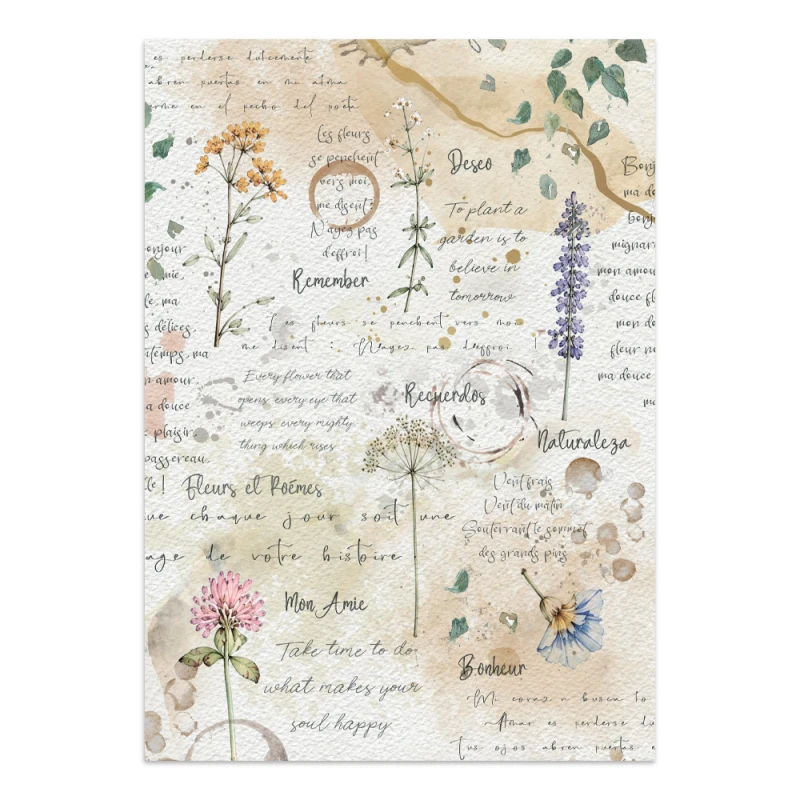 es perderse dulcemente
abren puertas en mi alma
arme en el pecho del poeta
Les fleurs
se penchent
vers moi,
me disent :
N'ayez pas
d'effroi !
Deseo
To plant a
garden is to
believe in
tomorrow
Bonj
ma do
bonj
mignar
mon amou
douce fl
mon do
fleur n
ma douce
m
Remember
onjour
e mie,
le, ma
s délices,
ntemps, ma
n amour,
a douce
plaisir
passereau,
lle !
Les fleurs se penchent vers moi
me disent : N'ayez pas d'effroi !
Every flower that
opens, every eye that
weeps, every mighty
thing which rises
Recuerdos
Naturaleza
Fleurs et Poémes
ue chaque jour soit une
age de votre histoire
Vent frais
Vent du matin
Souterrant le sommet
des grands pins
Mon Amie
Take time to do
what makes your
soul happy
Bonheur
Mi corazón busca tu
Amar es perderse du
Tus ojos abren puertas e